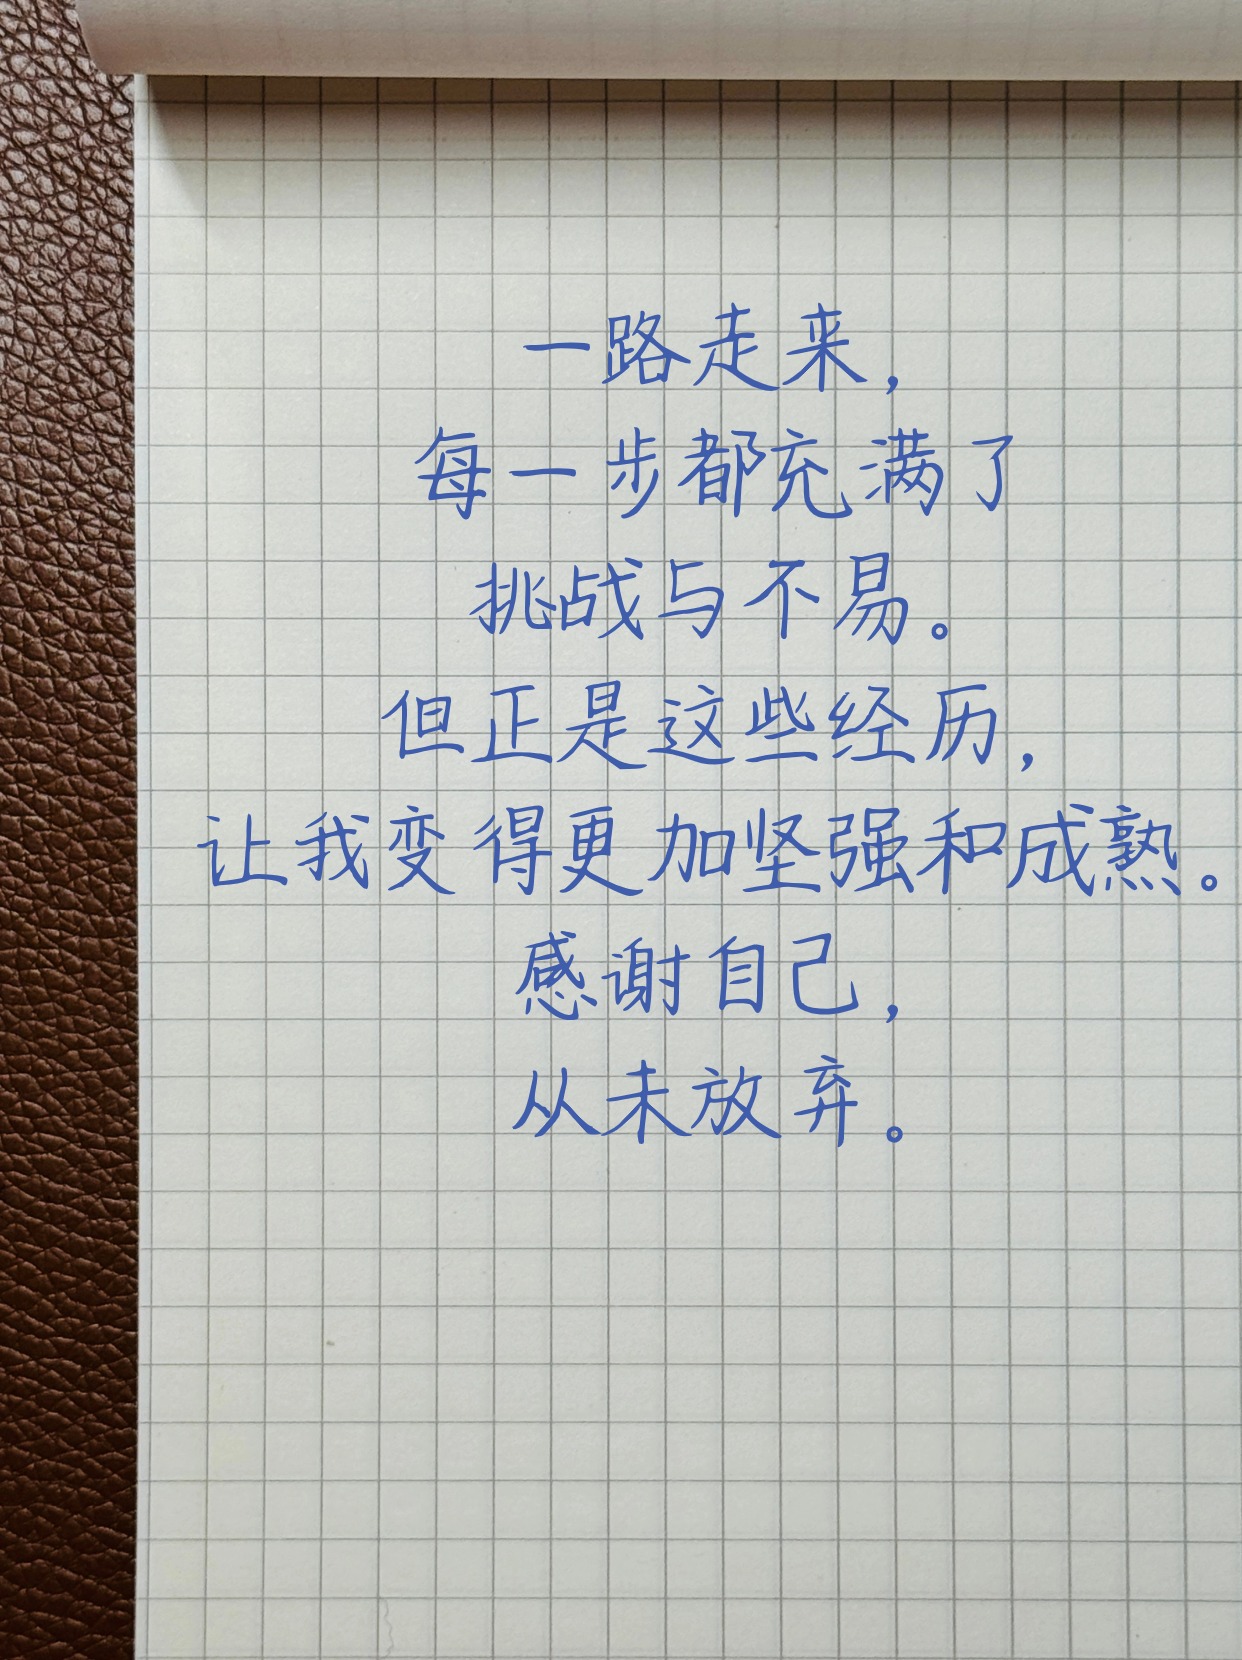 一路走来，
每一步都充满了
挑战与不易。
但正是这些经历，
让我变得更加坚强和成熟。
感谢自己，
从未放弃。